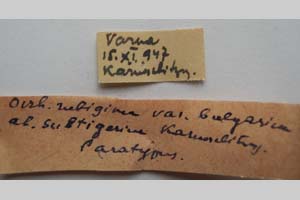 Varna
15.XI.947
Karnoschitzy.
Orrh. rubiginea var. bulgarica
ab. subtigerina Karnoschitzy.
Paratypus.